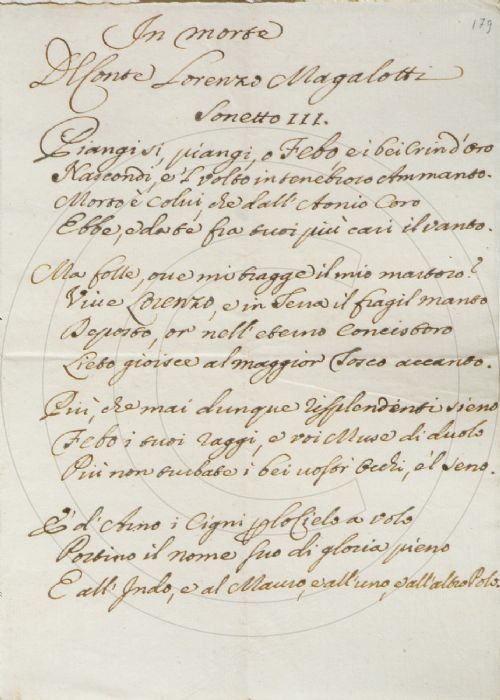 179
In morte
Del Conte Lorenzo Magalotti
Sonetto III.
Piangi sì, piangi, o Febo e i bei Crin d'oro
Nascondi, e 'l volto in tenebroso Ammanto.
Morto è Colui, che dall'Aonio Coro
Ebbe, e da te fra tuoi più cari il vanto.
Ma folle, ove mi tragge il mio martoro?
Vive Lorenzo, e in Terra il fragil manto
Deposto, or nell'eterno Concistoro
Lieto gioisce al maggior Tosco accanto.
Più, che mai dunque risplendenti sieno
Febo i tuoi raggi, e voi Muse di duolo
Più non turbate i bei vostri occhi, e 'l seno.
E d'Arno i Cigni Cielo a volo
Portino il nome suo di gloria pieno
E all'Indo, e al Mauro, e all'uno, e all'altro Polo.